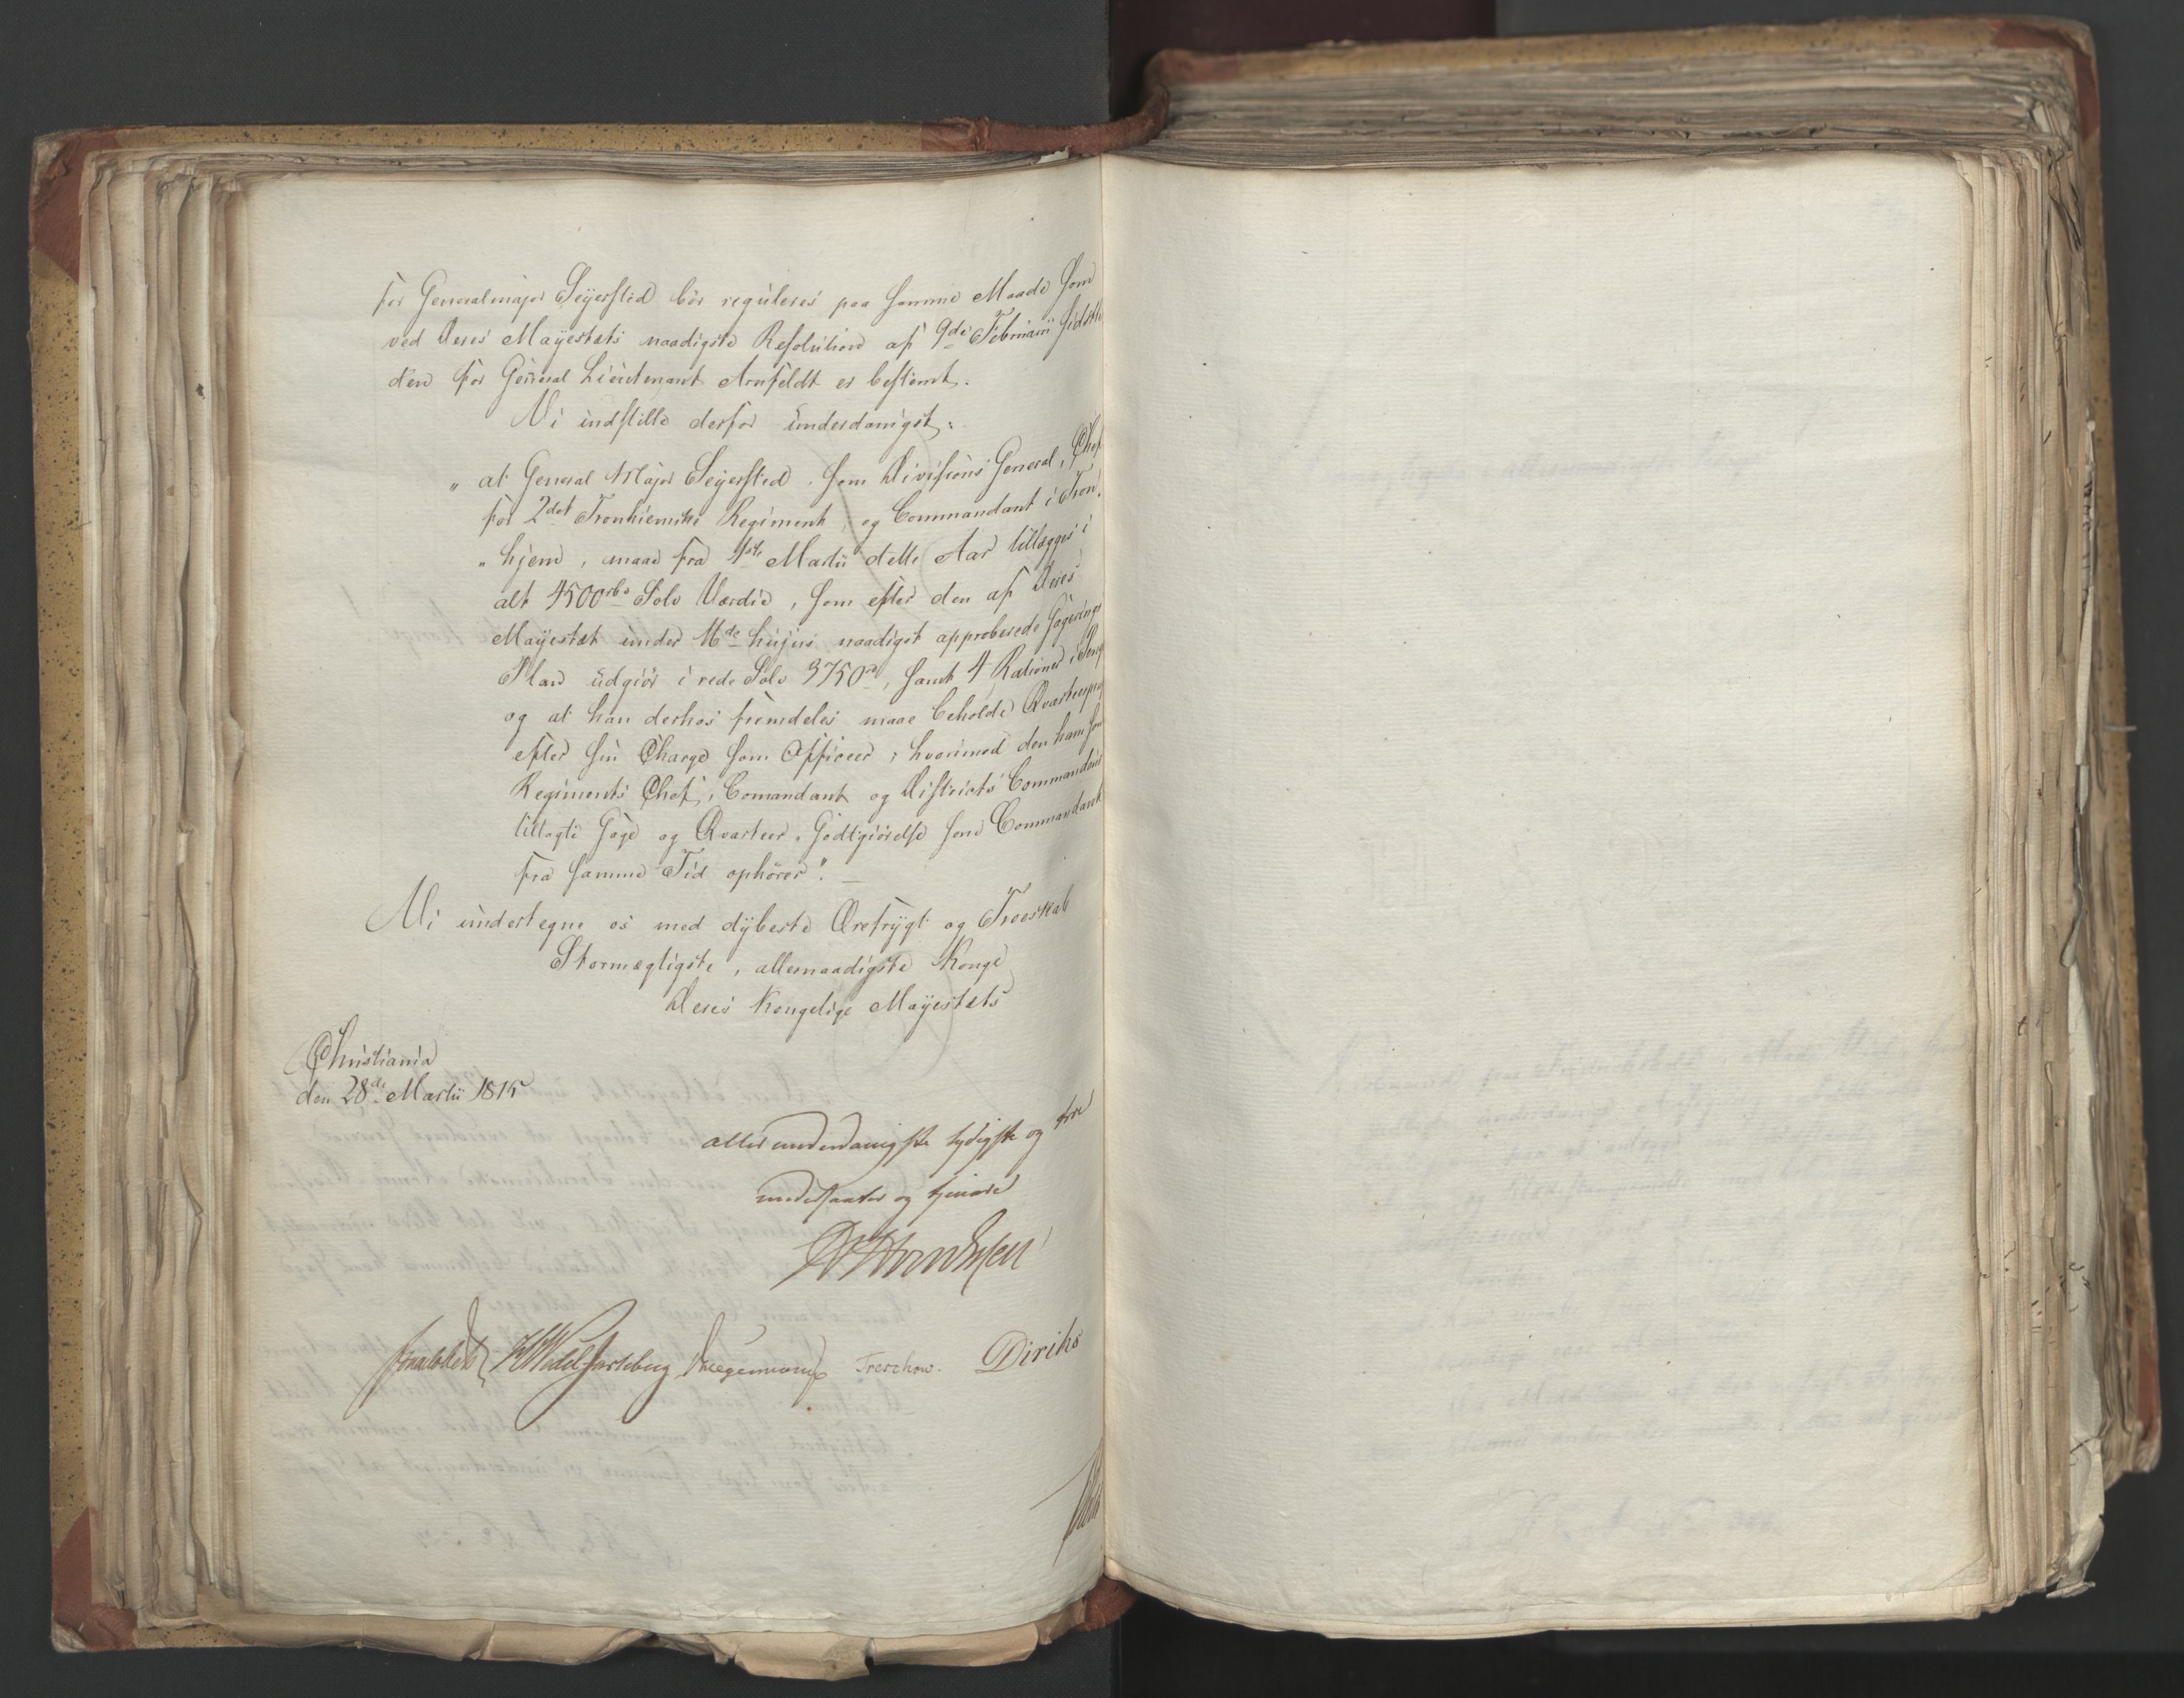 for Generalmajor Seyersted bør reguleres paa samme Maade som
ved Deres Mayestæts naadigste Resolution af 9de Februarii sidst
den for General Lieutenant Arnfeldt er bestemt.
Vi indstille derfor underdanigst:
„ at General Major Seyersted, som Divisions General, Chef
for 2det Tronhiemske Regiment, og Commandant i Tron,
„ hjem, maae fra 1ste Martii dette Aar tillægges i
alt 4500 rbd Sølv Værdie, som efter den af Deres
Mayestæt under 16de hujus naadigst approberede Gagerings
Plan udgiør i rede Sølv 3750, samt 4 Rationer i
og at han derhos fremdeles maae beholde
efter sin Charge som Officeer, hvorimod den ham som
Regiments Chef, Comandant og Districts Commandant
tillagte Gage og Qvarteer-Godtgiørelse som Commandant
fra samme Tid ophører". —
Vi undertegne os med dybeste Ærefrygt og Troeskab
Stormægtigste, allernaadigste Konge
Deres Kongelige Mayestæts
Christiania
den 28de Martii 1815
allerunderdanigste lydigste og troe
undersaatter og tjenere
Sommerhielm HWedel Jarlsberg Krogh Treschow. Diriks